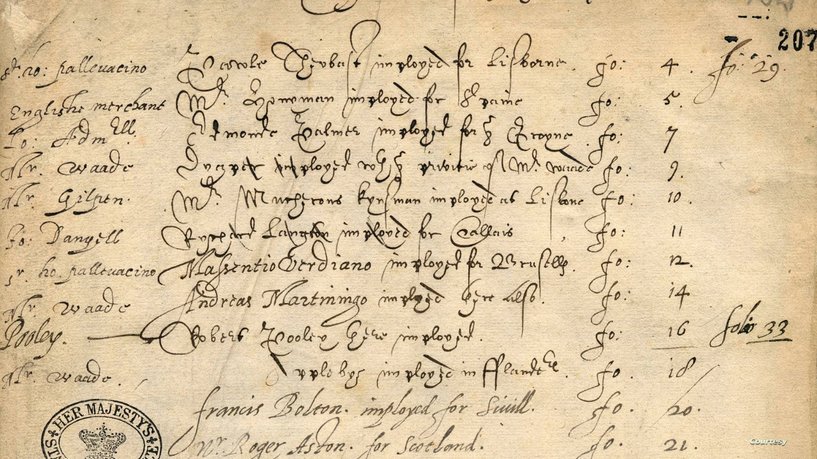 207
Sr. ho: pallevacino employed for Lisborne. fo: 4. fo: 29.
Englishe merchant Mr. employed for Spaine fo: 5.
Lo: Admll. Palmer employed for Groyne fo: 7
Mr. Waade employed Mr. waade fo: 9.
Mr. Gilpen. Mr. kynsman imployed at Lisbone fo: 10.
Jo: Dangell Langton imployed for Callais fo: 11
Sr ho. pallevacino Massentio Verdiano imployed for Brusells. fo: 12.
Mr. Waade Andreas Martiningo imployed here also. fo: 14
Pooley. Robert Pooley here imployed. fo: 16 folio 33
Mr. Waade. imployed in fflanders fo: 18
francis Bolton. imployed for Sivill. fo. 20.
Mr. Roger Aston. for Scotland. fo. 21.
HER MAJESTYS
Courtesy